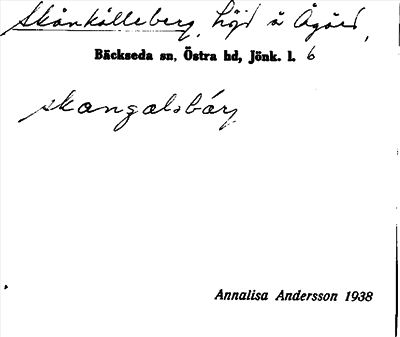 Skånkålleberg, höjd å Ågård,
Bäckseda sn, Östra hd, Jönk. l. 6
skangalsbárj
Annalisa Andersson 1938